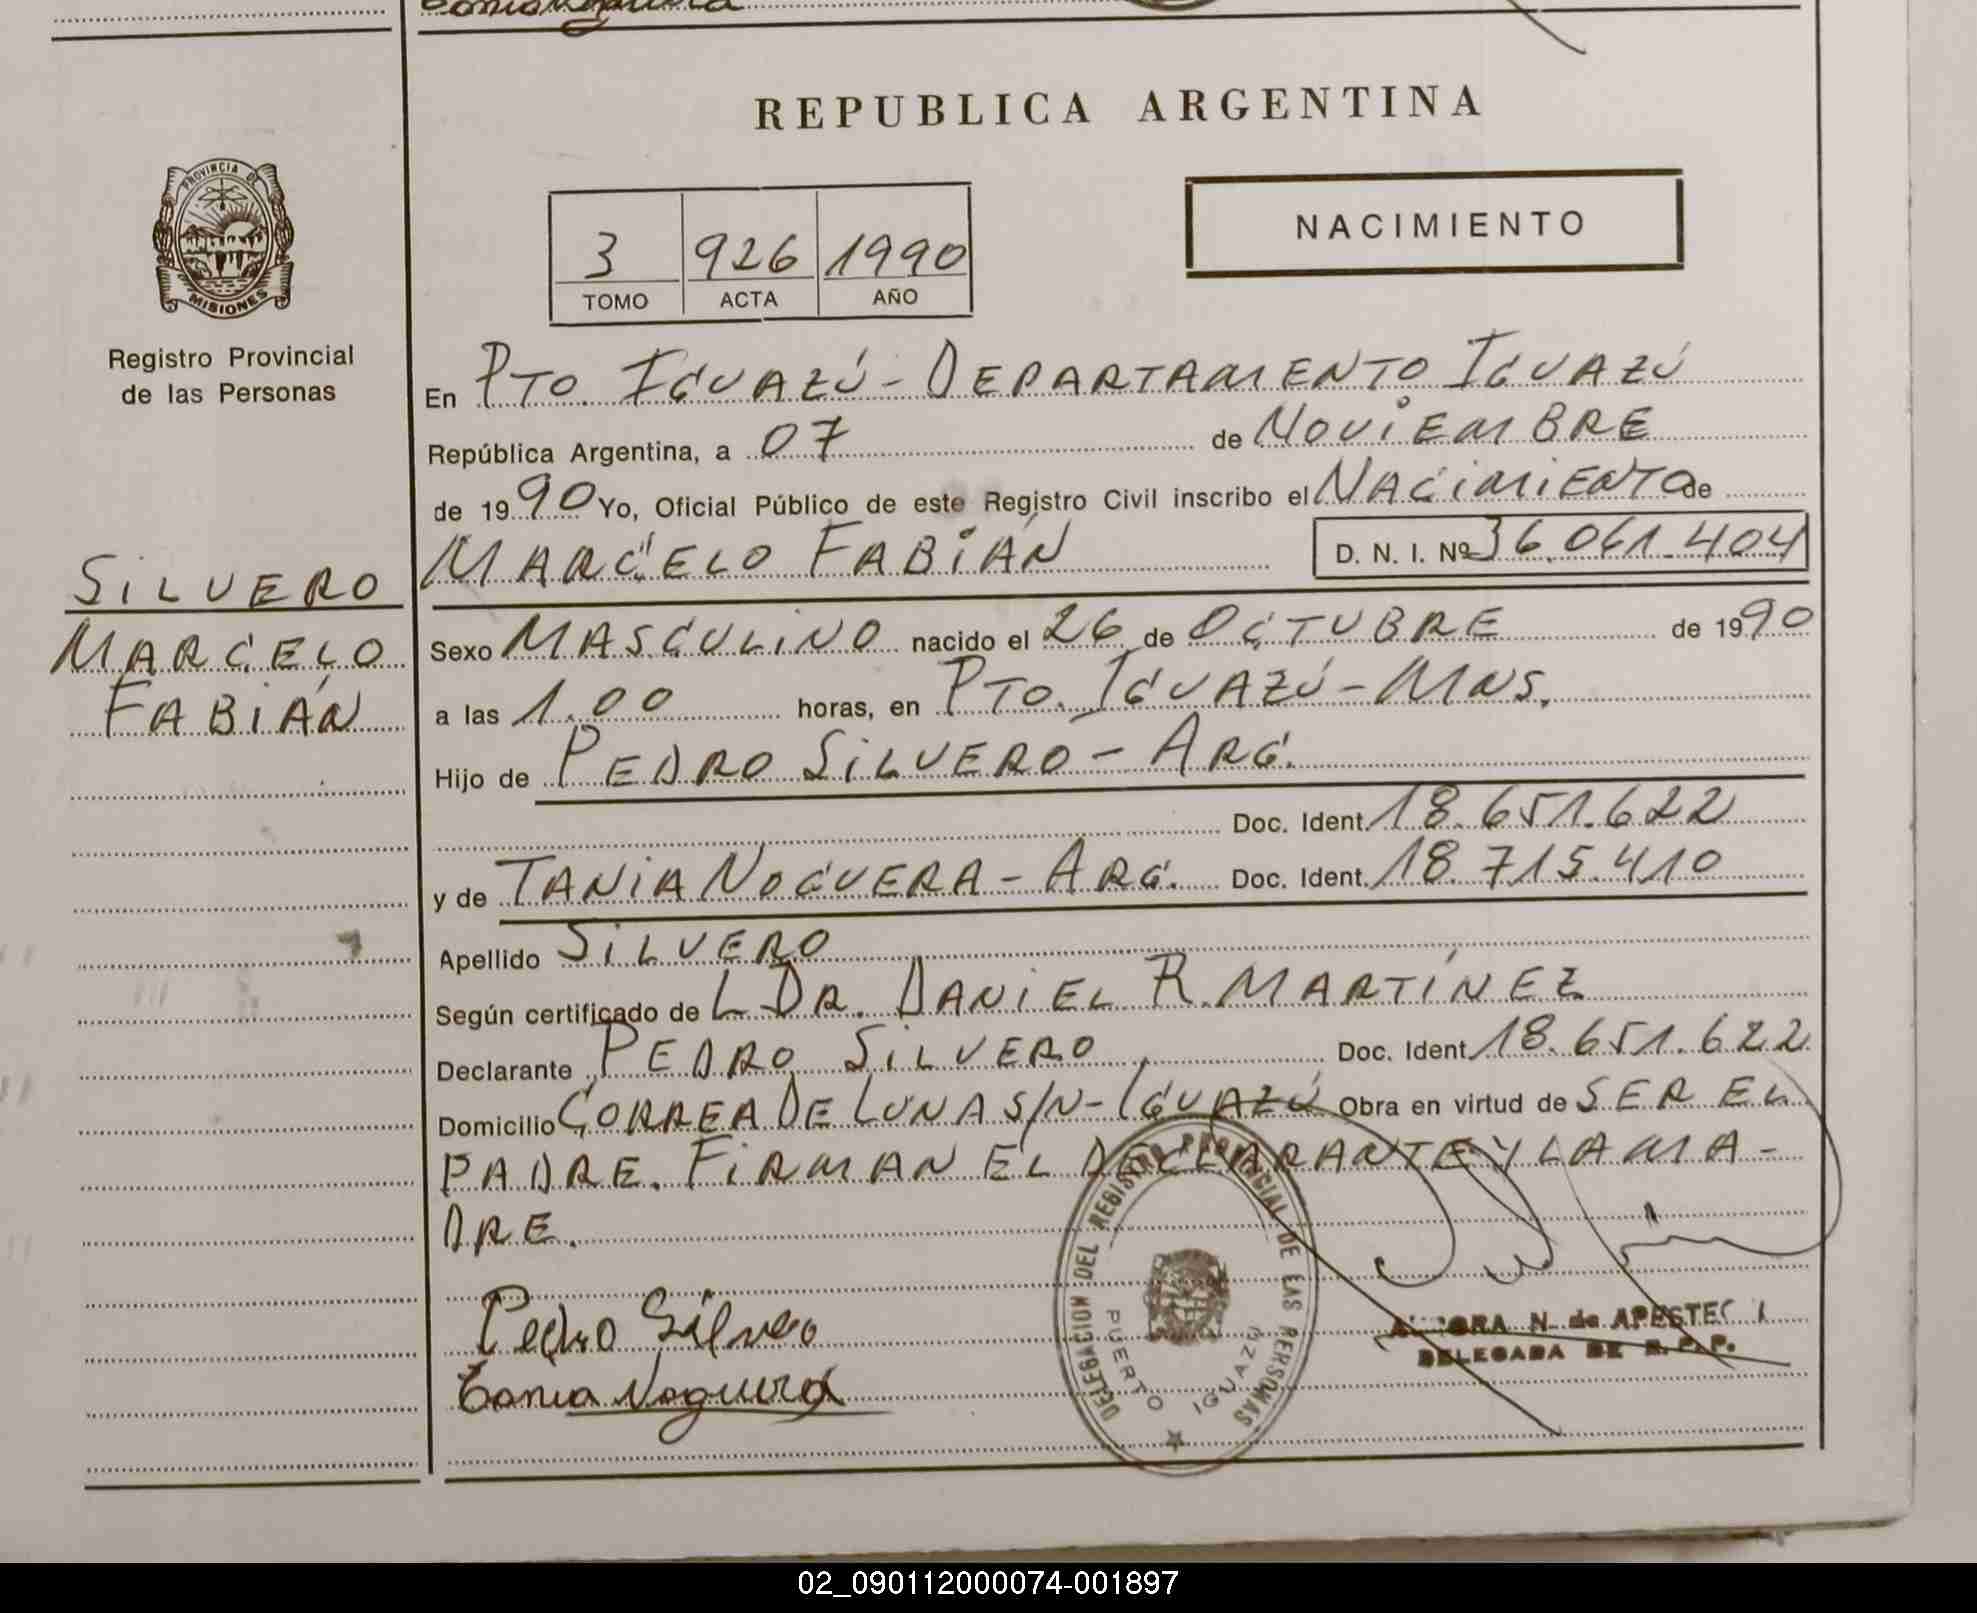 Tania Noguera
REPUBLICA ARGENTINA
PROVINCIA DE
MISIONES
Registro Provincial
de las Personas
3 926 1990
TOMO ACTA AÑO
NACIMIENTO
En PTO. IGUAZÚ - DEPARTAMENTO IGUAZÚ
República Argentina, a 07 de NOVIEMBRE
de 1990 Yo, Oficial Público de este Registro Civil inscribo el NACIMIENTO de
MARCELO FABIÁN D. N. I. Nº 36.061.404
SILVERO
MARCELO
FABIÁN
Sexo MASCULINO nacido el 26 de OCTUBRE de 1990
a las 1.00 horas, en PTO. IGUAZÚ - MNS.
Hijo de PEDRO SILVERO - ARG.
Doc. Ident. 18.651.622
y de TANIA NOGUERA - ARG. Doc. Ident. 18.715.410
Apellido SILVERO
Según certificado de L DR. DANIEL R. MARTÍNEZ
Declarante PEDRO SILVERO Doc. Ident. 18.651.622
Domicilio CORREA DE LUNA S/N - IGUAZÚ Obra en virtud de SER EL
PADRE. FIRMAN EL DECLARANTE Y LA MA-
DRE.
Pedro Silvero
Tania Noguera
DELEGACION DEL REGISTRO PROVINCIAL DE LAS PERSONAS
PUERTO IGUAZU
N. de
DELEGADA DE R.P.P.
02_090112000074-001897